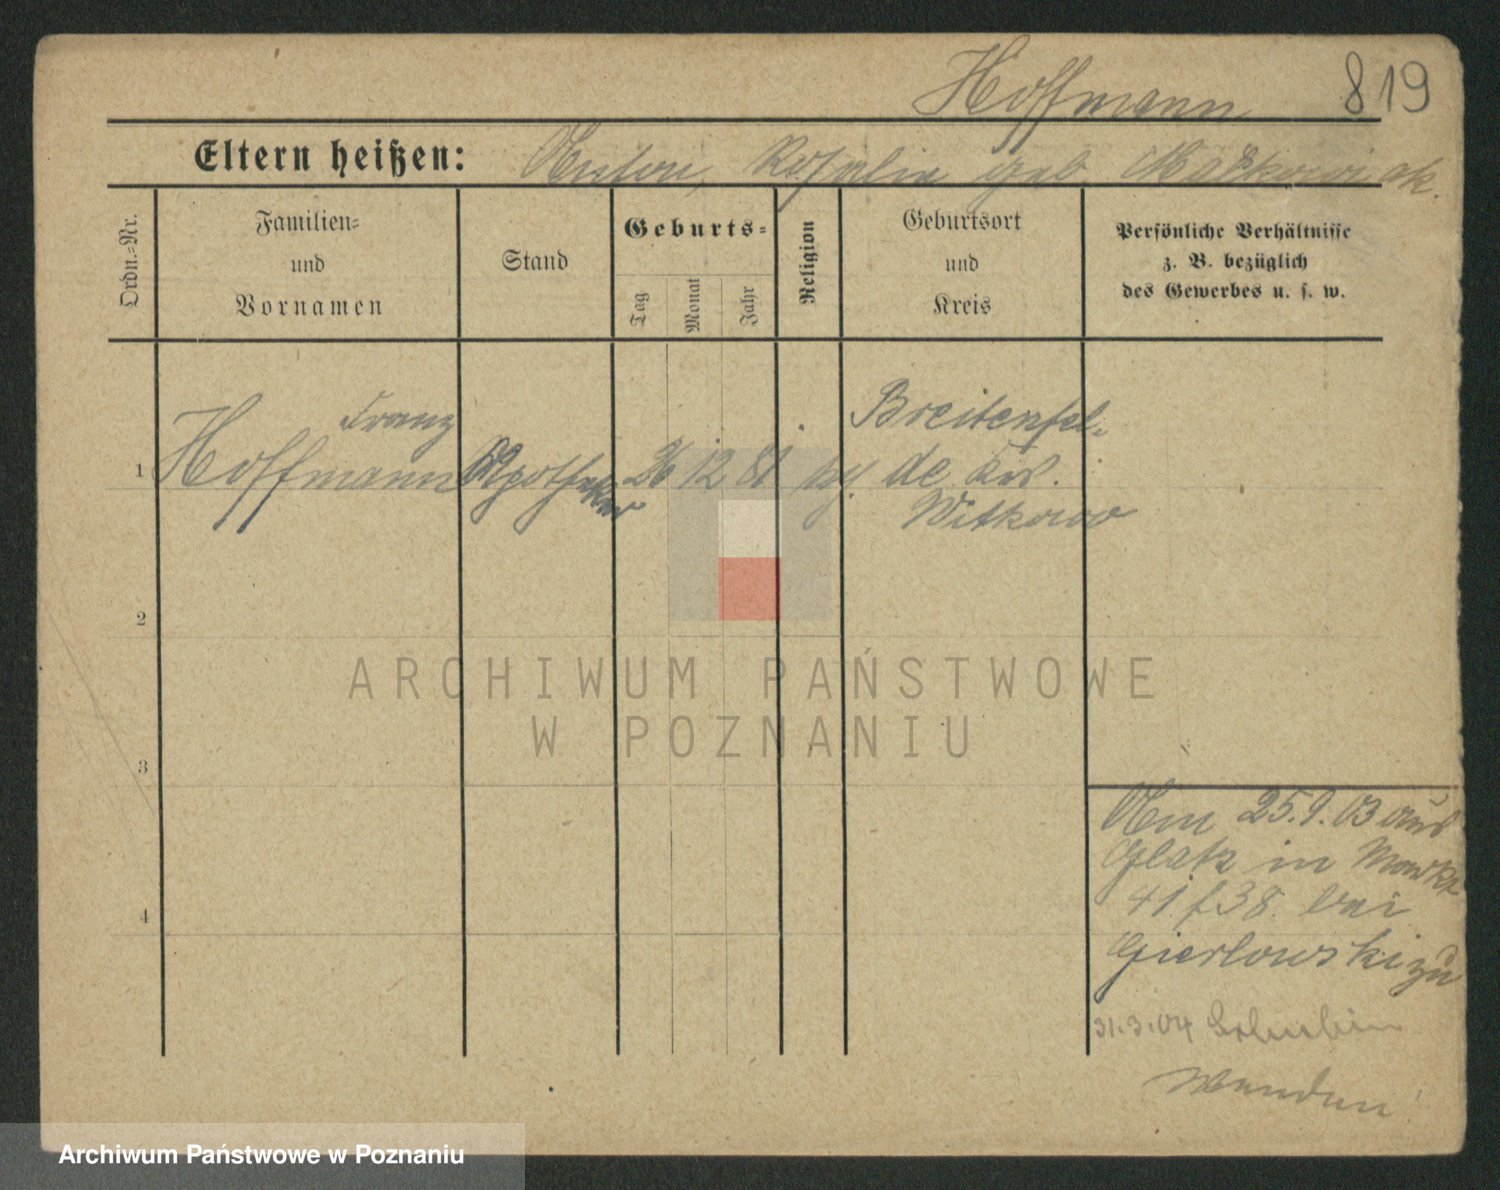 Hoffmann 819
Eltern heißen: Anton, Rosalia geb. Maćkowiak.
Ordn.-Nr.
Familien-
und
Vornamen
Stand
Geburts-
Tag
Monat
Jahr
Religion
Geburtsort
und
Kreis
Persönliche Verhältnisse
z. B. bezüglich
des Gewerbes u. s. w.
Franz
1 Hoffmann Apotheker 26 12 81
Breitenfel-
de Krs.
Witkowo
2
3
4
Am 25.9.03 aus
Glatz in Markt
41 f 38 bei
Gierlowski zu
31.3.04 Schubin
Wenden!
ARCHIWUM PAŃSTWOWE
W POZNANIU
Archiwum Państwowe w Poznaniu